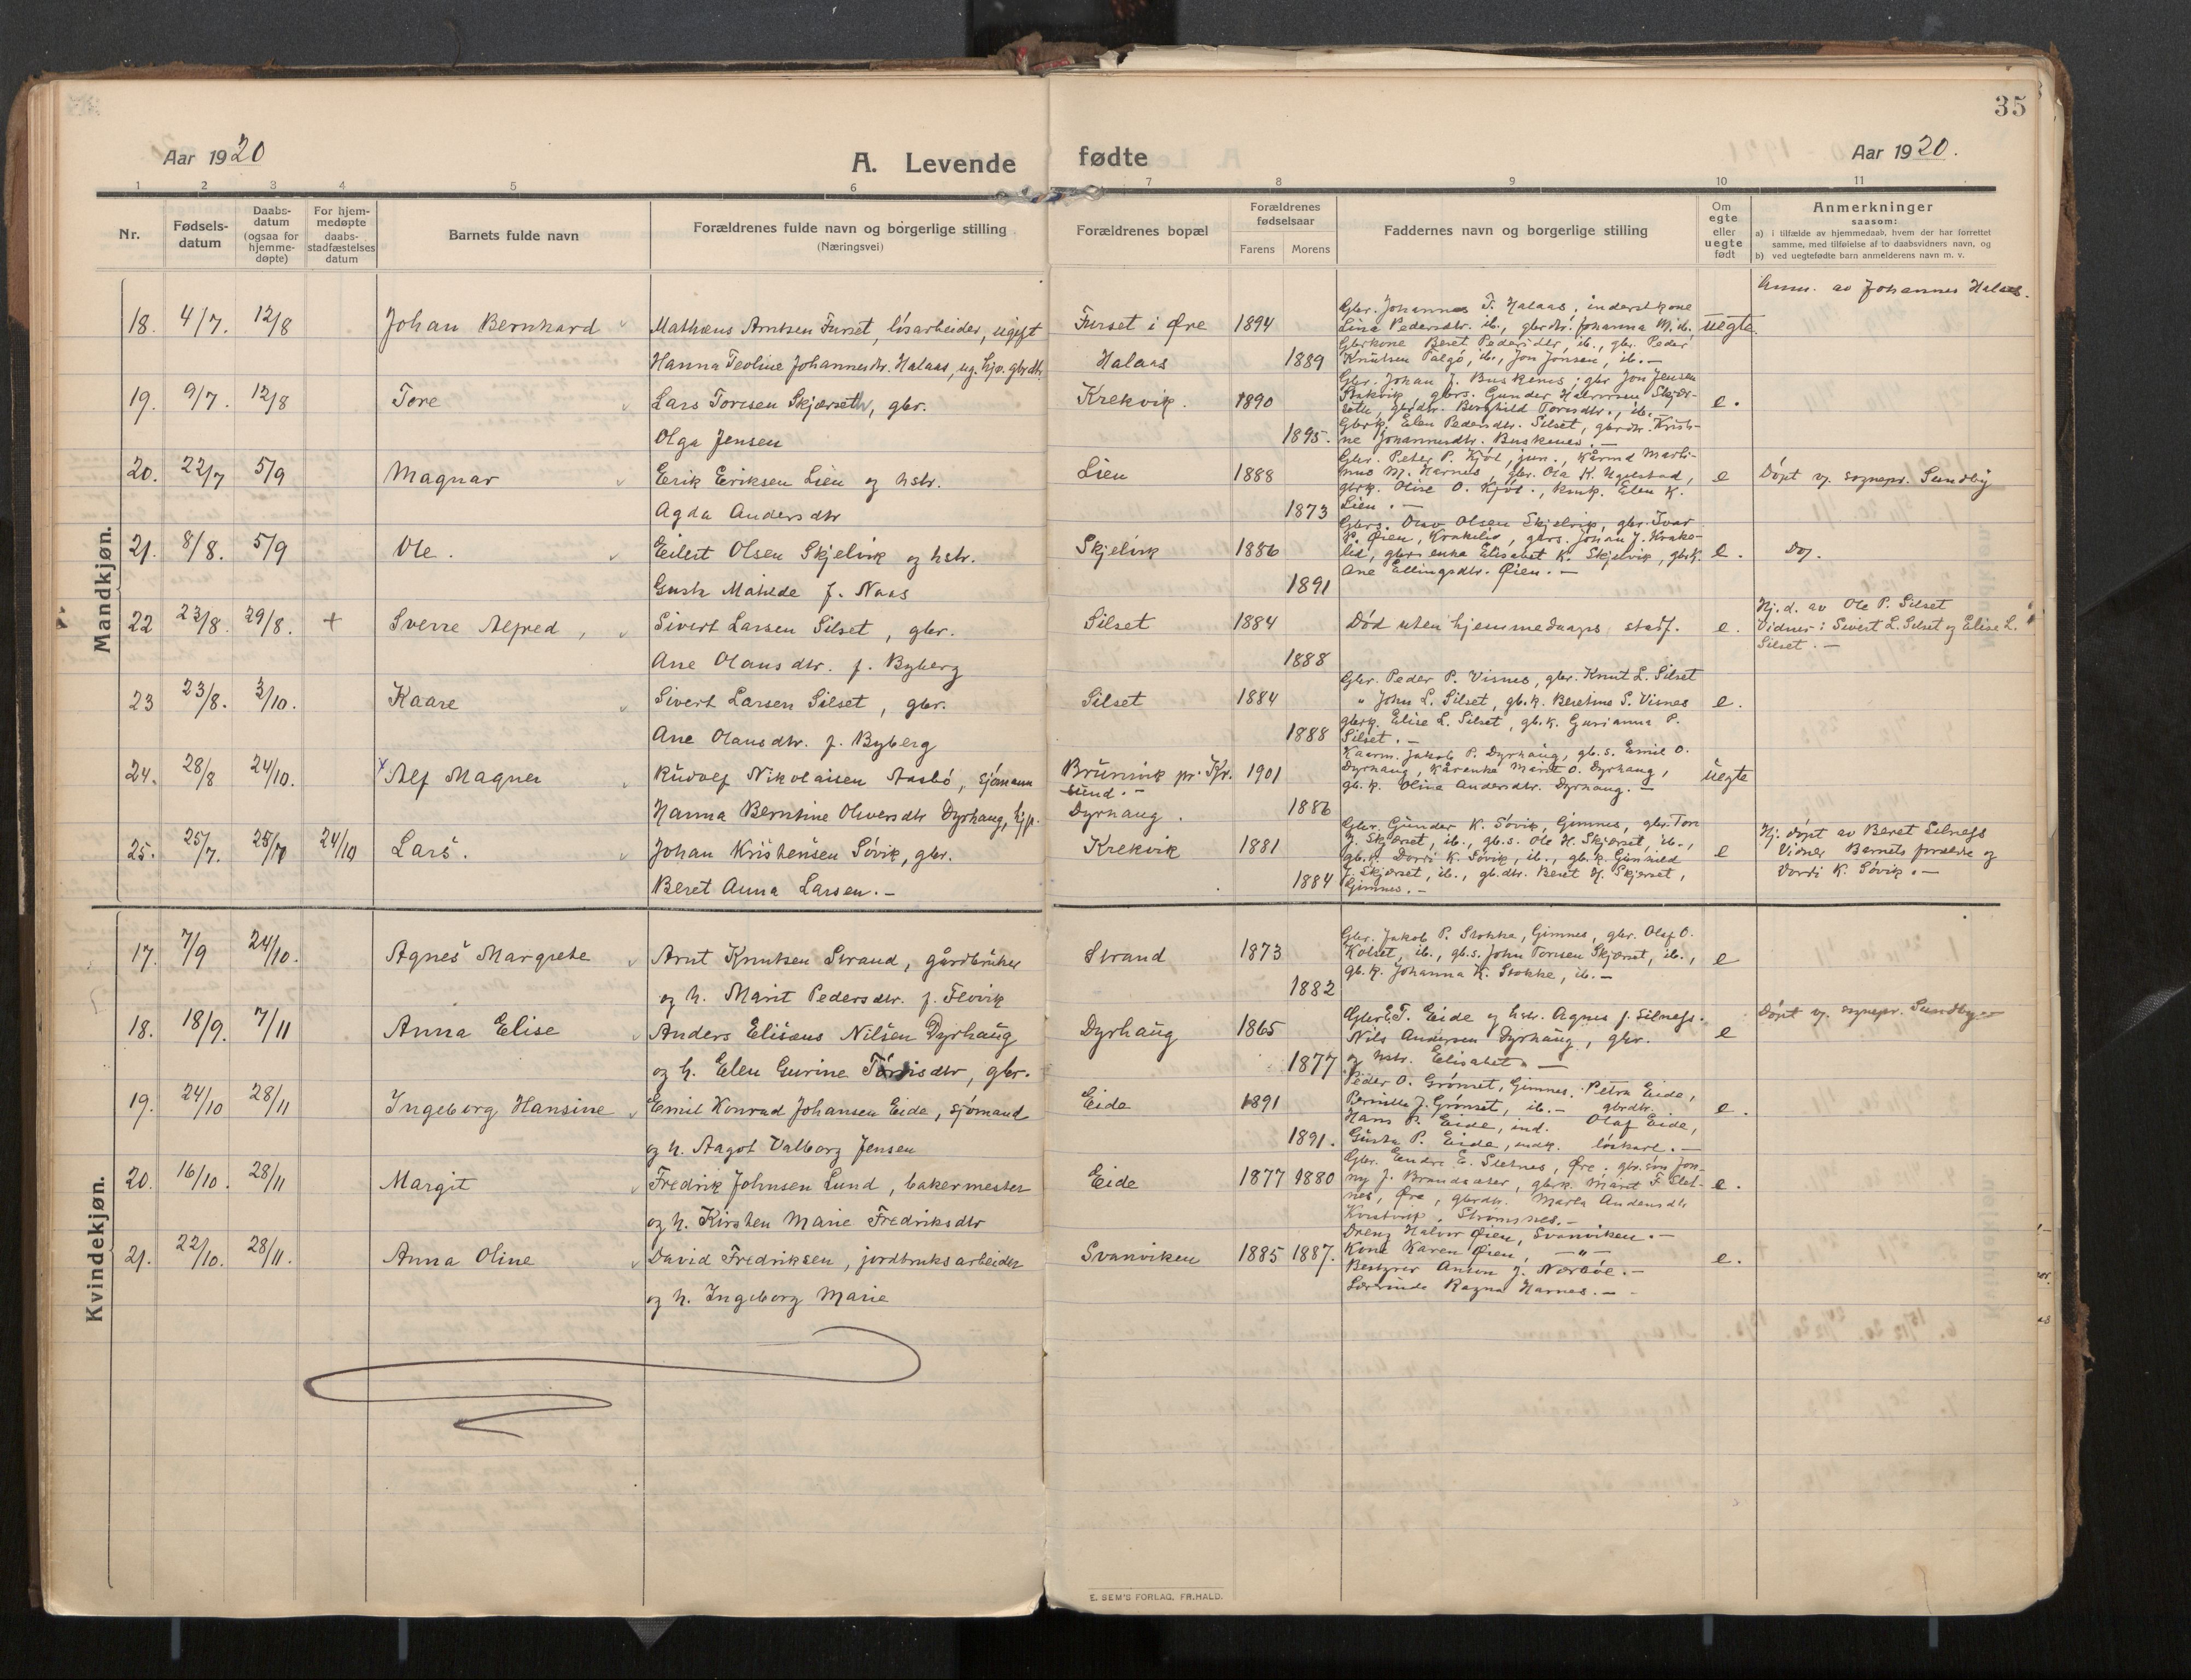 35
Aar 1920
A. Levende
fødte
Aar 1920.
1 2 3 4 5 6 7 8 9 10 11
Nr.
Fødsels-
datum
Daabs-
datum
(ogsaa for
hjemme-
døpte)
For hjem-
medøpte
daabs-
stadfæstelses
datum
Barnets fulde navn
Forældrenes fulde navn og borgerlige stilling
(Næringsvei)
Forældrenes bopæl
Forældrenes
fødselsaar
Farens Morens
Faddernes navn og borgerlige stilling
Om
egte
eller
uegte
født
Anmerkninger
saasom:
a) i tilfælde av hjemmedaab, hvem der har forrettet
samme, med tilføielse af to daabsvidners navn, og
b) ved uegtefødte barn anmelderens navn m. v.
Mandkjøn.
Anm. av Johannes Halaas.
18. 4/7. 12/8 Johan Bernhard Mathæus Arntsen Furset, løsarbeider, ugift Furset i Øre 1894
Gbr. Johannes T. Halaas, inderstkone
Lina Pedersdtr. ib., gbrdtr. Johanna M. ib., uegte.
Gbrkone Beret Pedersdtr, ib., gbr. Peder
Hanna Teoline Johannesdtr. Halaas, ug. hjv. gbrdtr. Halaas 1889 Knutsen Talgø, ib., Jon Jonsen, ib. —
19. 9/7. 12/8 Tore Lars Toresen Skjærseth, gbr. Krekvik. 1890 e.
Gbr. Johan J. Buskenes, gbr Jon Jensen
Stakvik, gbrs. Gunder Halvorsen Skjær-
seth, gbrdtr. Berghild Toresdtr., ib. —
Gbrk. Elen Pedersdtr. Silset, gbrdtr. Kristi-
Olga Jensen 1895. ne Johannesdtr. Buskenes. —
20. 22/7 5/9 Magnar Erik Eriksen Lien og hstr. Lien 1888 e Døpt v. sognepr. Sundby
Gbr. Peter P. Kjøl, jun., kårmd Marti-
nus M. Harnes, gbr. Ola K. Ugelstad,
gbrk. Olise O. Kjøl., kmk. Elen K.
Agda Andersdtr 1873 Lien. —
21. 8/8. 5/9 Ole. Eilert Olsen Skjelvik og hstr. Skjelvik 1886 e. Do.
Gbrs. Olav Olsen Skjelvik, gbr. Ivar
P. Øien, Krakelid, gbrs. Johan J. Krake-
lid, gbrs enka Elisabet K. Skjelvik, gbrk.
Ane Ellingsdtr. Øien. —
Gusta Matilde f. Naas 1891
22 23/8. 29/8. + Sverre Alfred, Sivert Larsen Silset, gbr. Silset 1884 Død uten hjemmedaaps stadf. e.
Hj. d. av Ole P. Silset
Vidner: Sivert L. Silset og Elise L.
Silset. —
Ane Olausdtr. f. Byberg 1888
23 23/8. 3/10. Kaare Sivert Larsen Silset, gbr. Silset 1884 e.
Gbr. Peder P. Visnes, gbr. Knut L. Silset
" John L. Silset, gb.k. Beretine S. Visnes
gbrk. Elise L. Silset, gb.k. Gurianna P.
Ane Olausdtr. f. Byberg 1888 Silset. —
24. 28/8 24/10. Alf Magner Rudolf Nikolaisen Aasbø, sjømann Brunsvik pr. Kr. 1901 uegte
sund. —
Kaarm. Jakob P. Dyrhaug, gb.s. Emil O.
Dyrhaug, kårenke Marit O. Dyrhaug,
gb.k. Olina Andersdtr. Dyrhaug. —
Hanna Berntine Oliversdtr Dyrhaug, hjp. Dyrhaug. 1886
25. 25/7. 25/7 24/10 Lars. Johan Kristensen Søvik, gbr. Krekvik 1881 e
Gbr. Gunder K. Søvik, Gimnes, gbr. Tore
J. Skjærset, ib., gb.s. Ole H. Skjærset, ib.,
gb.k. Dordi K. Søvik, ib., gb.k. Gunhild
J. Skjærset, ib., gb.dtr. Beret H. Skjærset,
Gimnes. —
Hj. døpt av Beret Silnes
Vidner Barnets forældre og
Dordi K. Søvik. —
Beret Anna Larsen. — 1884
Kvindekjøn.
17. 7/9 24/10. Agnes Margrete Arnt Knutsen Strand, gårdbruker Strand 1873 e
Gbr. Jakob P. Stokke, Gimnes, gbr. Olaf O.
Kolset, ib., gb.s. John Toresen Skjærset, ib.,
gb.k. Johanna K. Stokke, ib. —
og h. Marit Pedersdtr. f. Flevik 1882
18. 18/9. 7/11 Anna Elise Anders Elisæus Nilsen Dyrhaug Dyrhaug 1865 e Døpt v. sognepr. Sundby. —
Gbr E. T. Eide og hstr. Agnes f. Silnes.
Nils Andersen Dyrhaug, gbr.
og hstr. Elisabet. —
og h. Elen Gurine Torrisdtr, gbr. 1877
19. 24/10 28/11 Ingeborg Hansine Emil Konrad Johansen Eide, sjømand Eide 1891 e.
Peder O. Grønset, Gimnes. Petra Eide,
Pernille J. Grønset, ib. — gbrdtr.
Hans P. Eide, ind. Olaf Eide,
Gusta P. Eide, indk. løskarl. —
og h. Aagot Valborg Jensen 1891.
20. 16/10. 28/11 Margit Fredrik Johnsen Lund, bakermester Eide 1877 1880 e.
Gbr. Endre E. Sletnes, Øre, gbr. søn Jon-
ny J. Brandsæter, gbrk. Marit F. Slet-
nes, Øre, gbrdtr. Marta Andersdtr
Korsvik, Strømsnes. —
og h. Kirsten Marie Fredriksdtr
21. 22/10. 28/11. Anna Oline David Fredriksen, jordbruksarbeider Svanviken 1885 1887. e.
Dreng Halvor Øien, Svanviken. —
Kone Karen Øien, —"—
Bestyrer Anton J. Nerbøe. —
Lærerinde Ragna Harnes. —
og h. Ingeborg Marie
E. SEM'S FORLAG, FR.HALD.